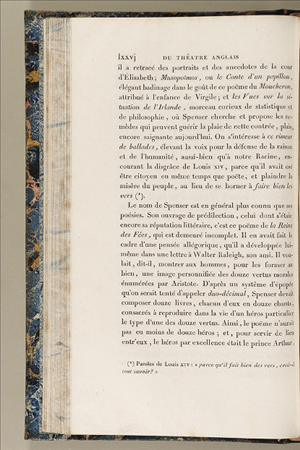 lxxvj DU THÉATRE ANGLAIS
il a retracé des portraits et des anecdotes de la cour
d'Élisabeth; Muiopotmos, ou le Conte d'un papillon,
élégant badinage dans le goût de ce poëme du Moucheron,
attribué à l'enfance de Virgile; et les Vues sur la si-
tuation de l'Irlande, morceau curieux de statistique et
de philosophie, où Spenser cherche et propose les re-
mèdes qui peuvent guérir la plaie de cette contrée, plaie
encore saignante aujourd'hui. On s'intéresse à ce rimeur
de ballades, élevant la voix pour la défense de la raison
et de l'humanité, aussi-bien qu'à notre Racine, en-
courant la disgrâce de Louis XIV, parce qu'il avait osé
être citoyen en même temps que poëte, et plaindre la
misère du peuple, au lieu de se borner à faire bien les
vers (*).
Le nom de Spenser est en général plus connu que ses
poésies. Son ouvrage de prédilection, celui dont s'était
encore sa réputation littéraire, c'est ce poëme de la Reine
des Fées, qui est demeuré incomplet. Il en avait fait le
cadre d'une pensée allégorique, qu'il a développée lui-
même dans une lettre à Walter Raleigh, son ami. Il vou-
lait, dit-il, montrer aux hommes, pour les former au
bien, une image personnifiée des douze vertus morales
énumérées par Aristote. D'après un système d'épopée
qu'on serait tenté d'appeler duo-décimal, Spenser devait
composer douze livres, chacun d'eux en douze chants,
consacrés à reproduire dans la vie d'un héros particulier
le type d'une des douze vertus. Ainsi, le poëme n'aurait
pas eu moins de douze héros; et, pour servir de lien
entr'eux, le héros par excellence était le prince Arthur,
(*) Paroles de Louis XIV: « parce qu'il fait bien des vers, croit-il
tout savoir? »